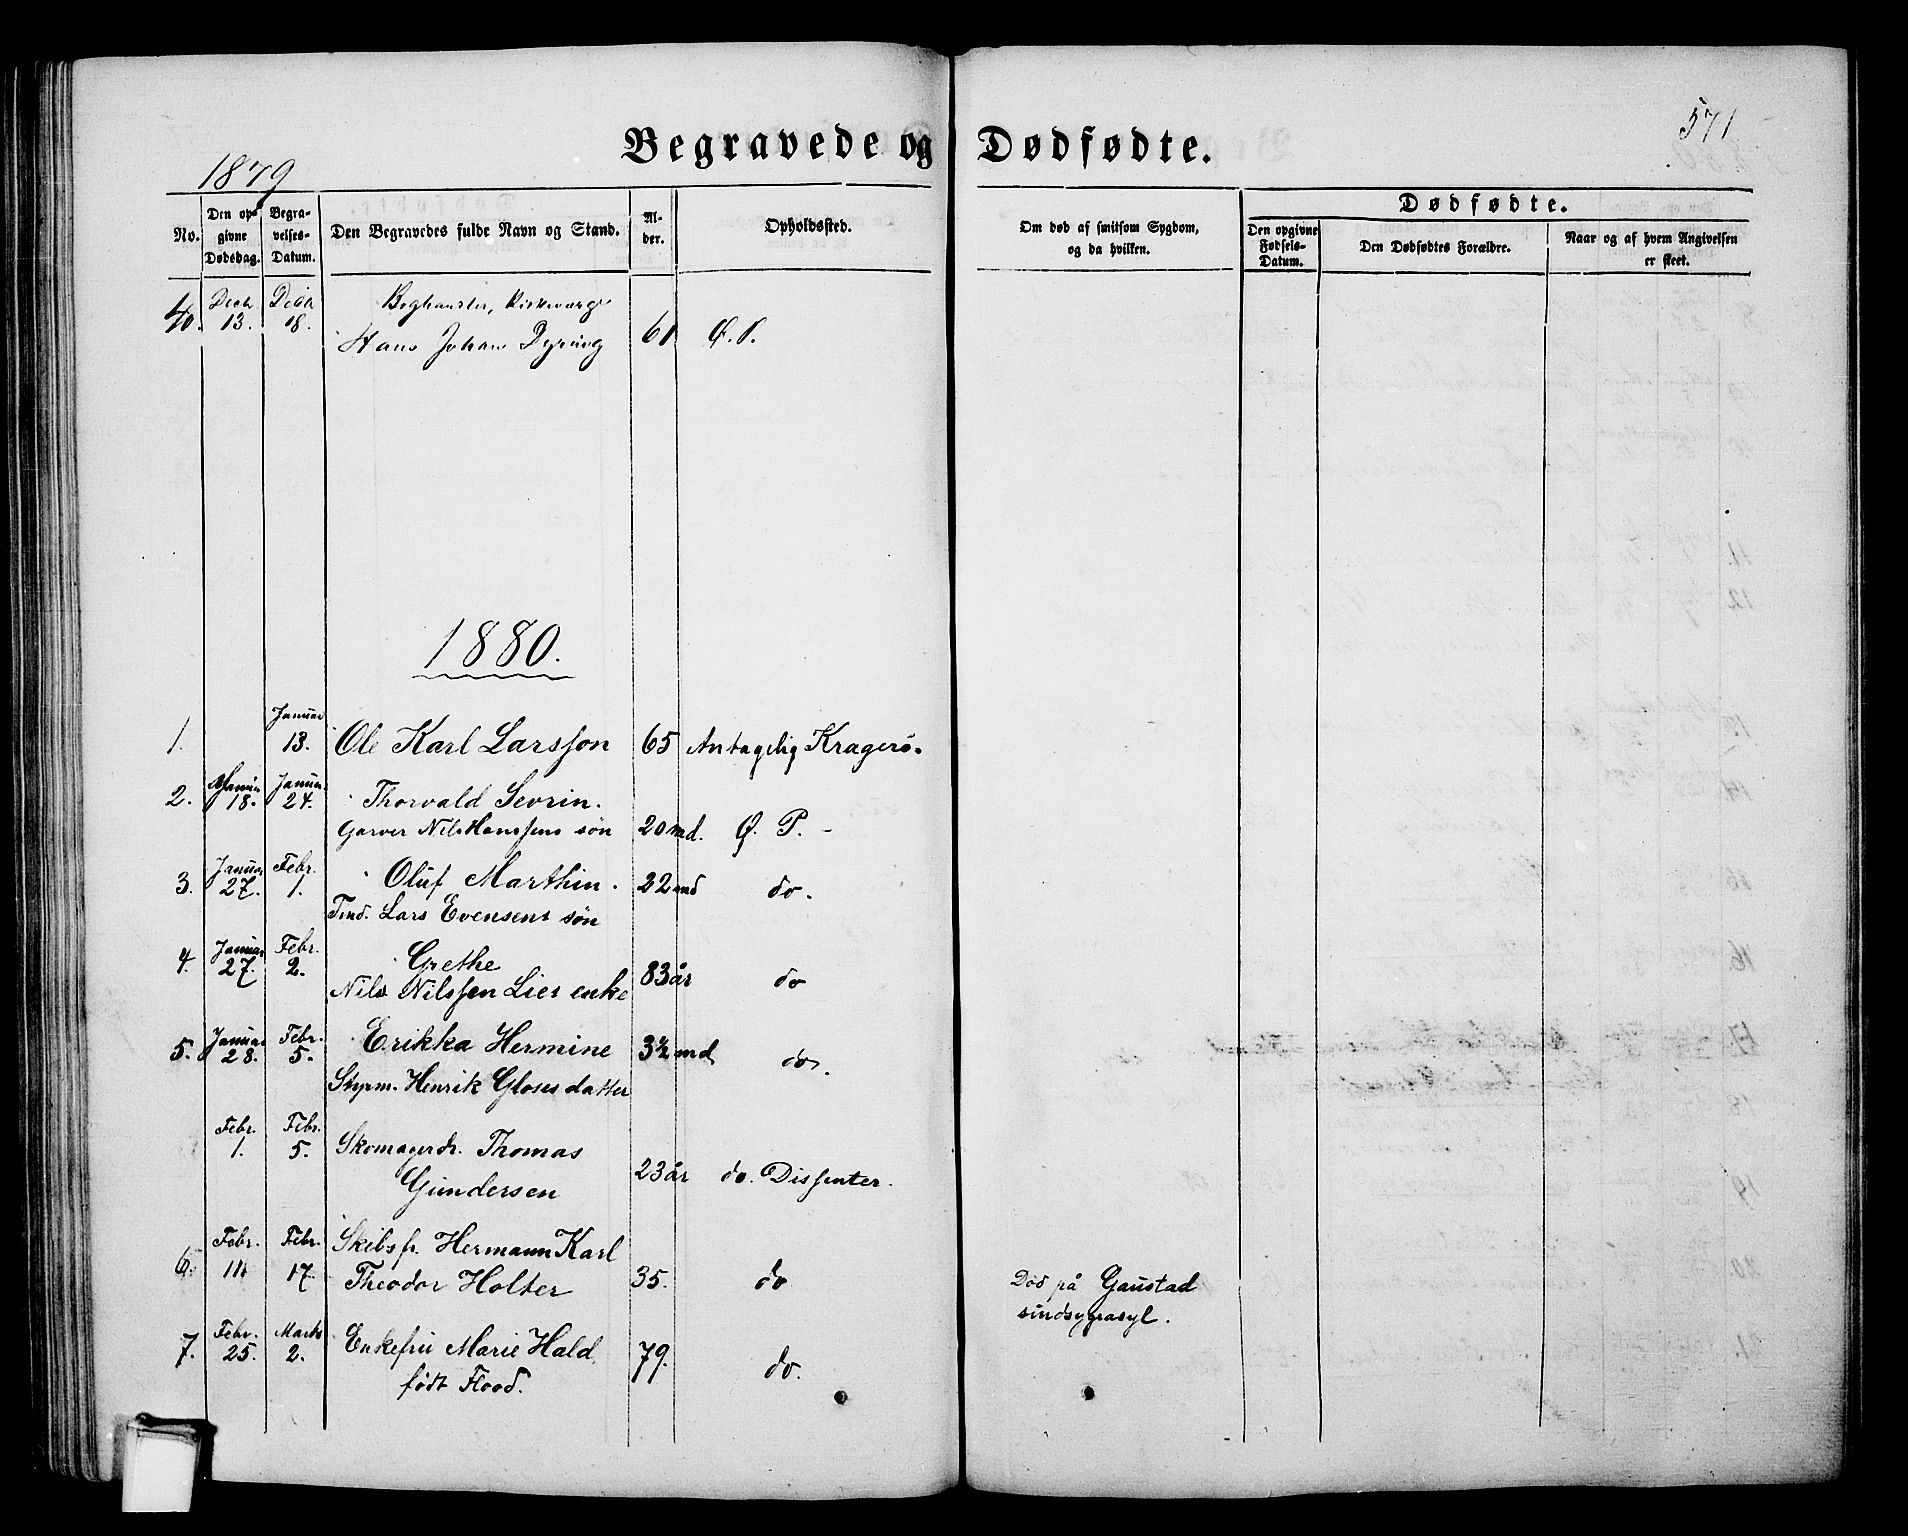 571
Begravede og Dødfødte.
1879
No.
Den opgivne Dødsdag.
Begravelses-Datum.
Den Begravedes fulde Navn og Stand.
Alder.
Opholdssted.
Om død af smitsom Sygdom, og da hvilken.
Dødfødte.
Den opgivne Fødsels-Datum.
Den Dødfødtes Forældre.
Naar og af hvem Angivelsen er skeet.
40. Decbr 13. Decbr 18. Boghandler, Kirkeværge
Hans Johan Dyring 61 Ø. P.
1880.
1. Januar 13. Ole Karl Larsson 65 Antagelig Kragerö.
2. Januar 18. Januar 24. Thorvald Sevrin.
Garver Nils Hanssens søn 20 md. Ø. P. -
3. Januar 27. Febr. 1. Oluf Marthin. 22 md do.
Tmd. Lars Evensens søn
4. Januar 27. Febr. 2. Grethe
Nils Nilssen Lies enke 83 år do
5. Januar 28. Febr. 5. Erikka Hermine 3½ md do.
Styrm. Henrik Gloses datter
Febr. 1. Febr. 5. Skomagerdr. Thomas
Gundersen 23 år do. Dissenter.
Febr. Febr. Skibsfr. Hermann Karl
6. 17. Theodor Holter 35. do Död på Gaustad
sindsygeasyl.
7. Febr. 25. Marts 2. Enkefru Marie Hald 79. do.
födt Flood.